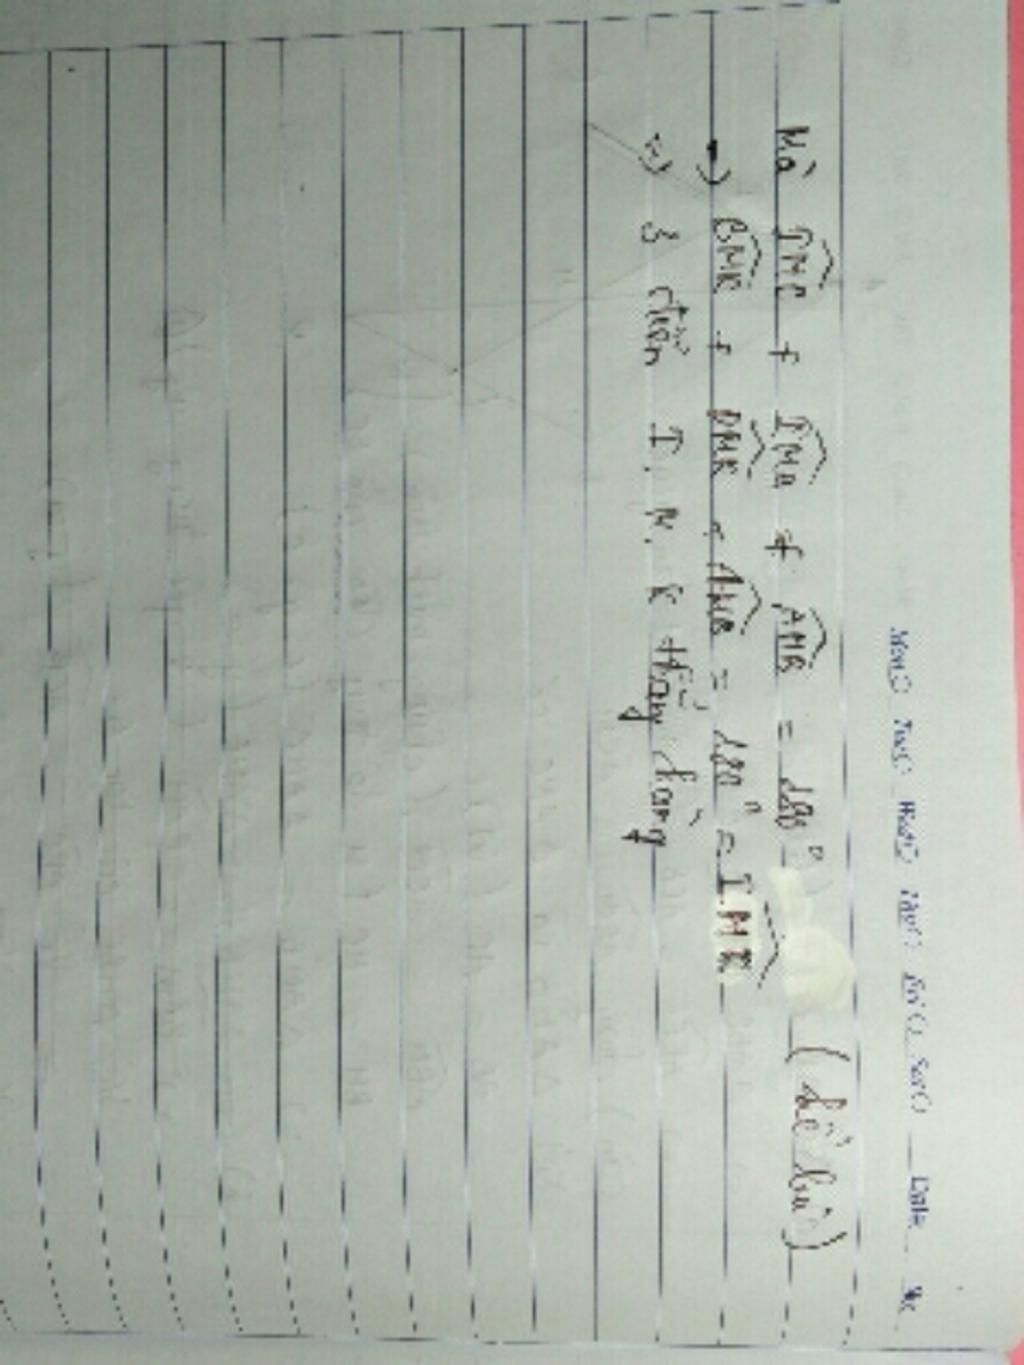 Mon○ Tue○ Wed○ Thu○ Fri○ Sat○ Date No
Mà IMC + IMA + AMB = 180° (kề bù)
=> BMK + DMK + AMB = 180° = IMK
=> 3 điểm I, M, K thẳng hàng